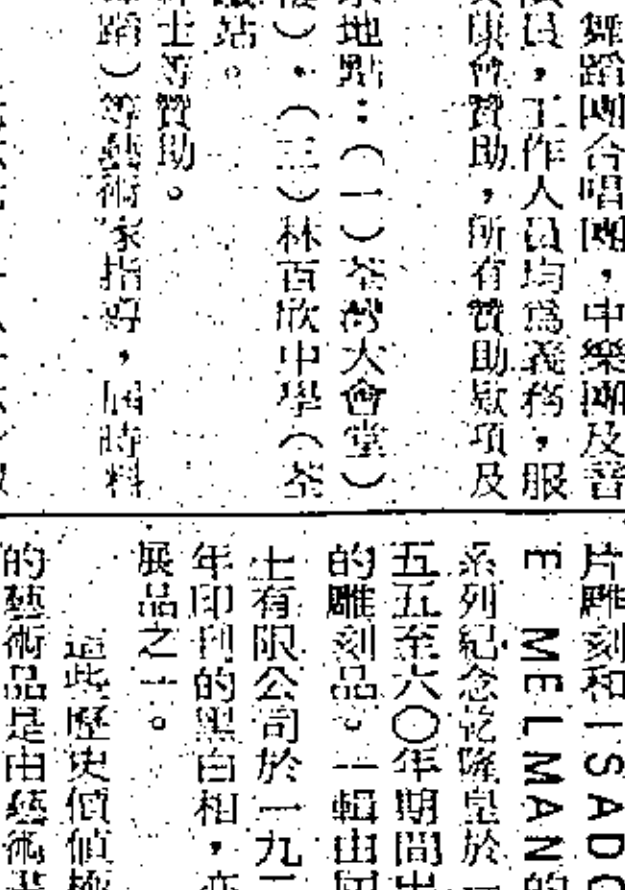 舞蹈團合唱團，中樂團及音
員，工作人員均為義務，服
康會贊助，所有贊助款項及
地點：（一）荃灣大會堂）
）．（三）林百欣中學（荃
站。
士等贊助。
蹈）等藝術家指導，屆時料
片雕刻和ISADO
E MELMAN的
系列紀念乾隆皇於一
五五至六〇年期間出
的雕刻品。一輯由
士有限公司於一九二
年印刊的黑白相，亦
展品之一。
這些歷史價值極
的藝術品是由藝術